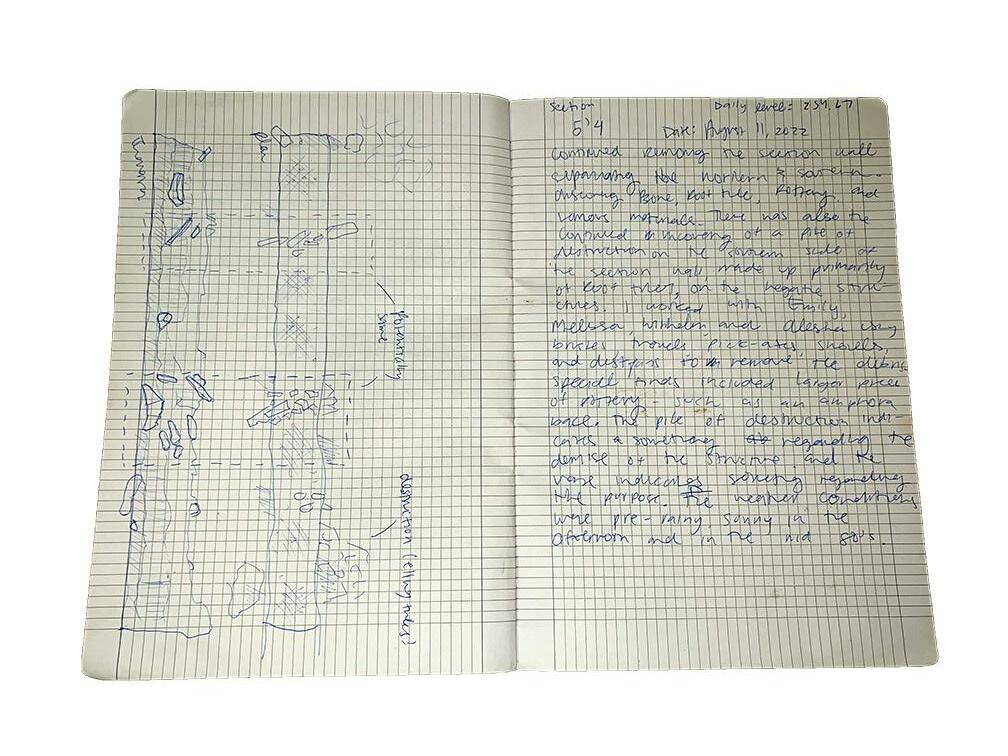 Plan
Potentially
same
destruction
Section Daily level = 254.67
5'4 Date: August 11, 2022
Continued removing the section wall
expanding the northern &
Bone, Roof tile, Pottery, and
various materials. There was also the
continued uncovering of a pile of
destruction on the side of
the section wall, made up primarily
of Roof tiles, on the negative struc-
tures. I worked with Emily,
Melissa, Wilhelm and Alesha using
trowels, pick-axes, shovels,
and dustpans to remove the debris.
Special finds included larger piece
of pottery - such as an amphora
base. The pile of destruction indi-
cates a something regarding the
demise of the structure and the
indicates something regarding
the purpose. The weather conditions
were pre-rainy, sunny in the
afternoon and in the mid 80's.